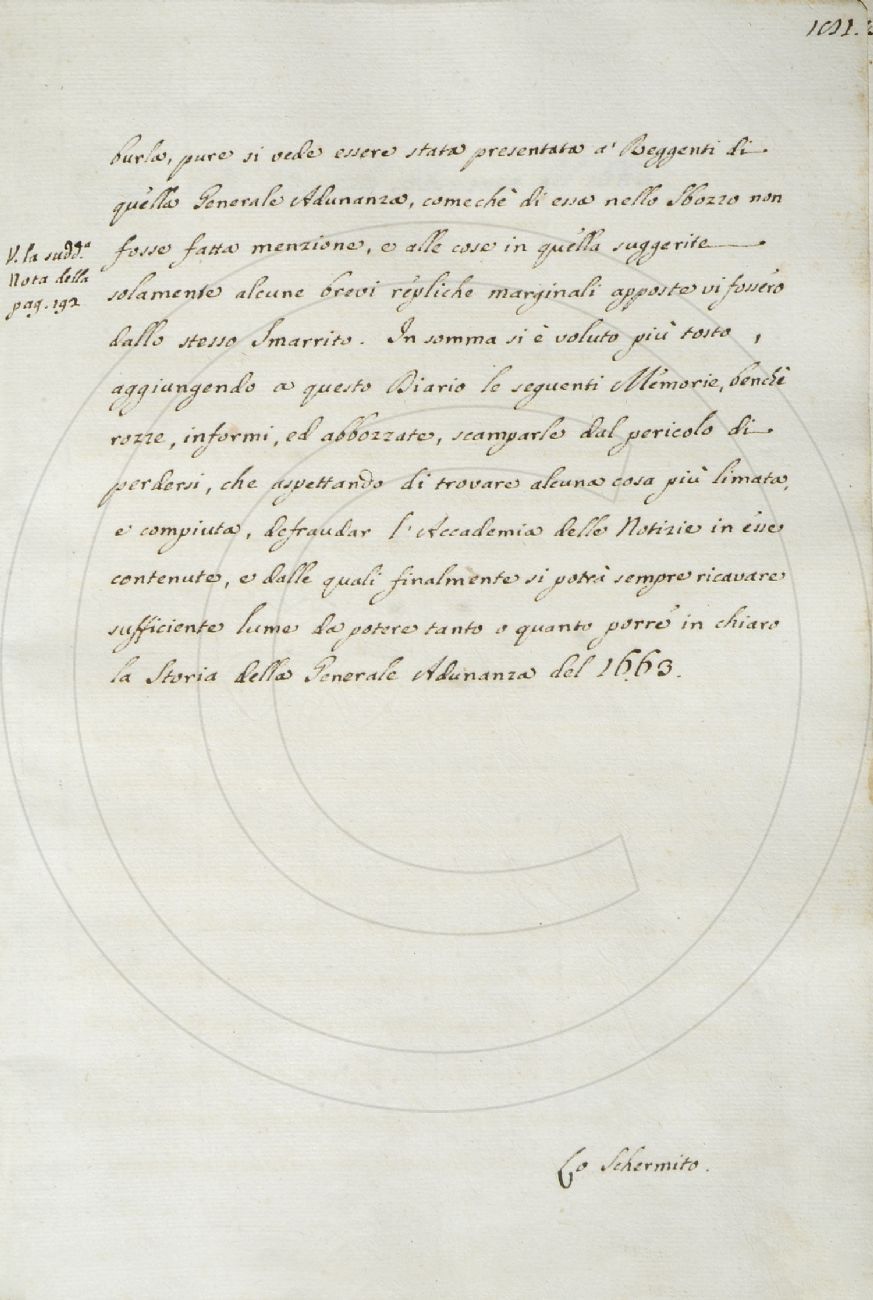 burla, pure si vede essere stata presentata a' Reggenti di
quella Generale Adunanza, comechè di essa nello Sbozzo non
fosse fatta menzione, e alle cose in quella suggerite
solamente alcune brevi repliche marginali apposte vi fossero
dallo stesso Smarrito. In somma si è voluto più tosto,
aggiungendo a questo Diario le seguenti Memorie, benchè
rozze, informi, ed abbozzate, scamparle dal pericolo di
perdersi, che aspettando di trovare alcuna cosa più limata,
e compiuta, defraudar l'Accademia delle Notizie in esse
contenute, e dalle quali finalmente si potrà sempre ricavare
sufficiente lume da potere tanto o quanto porre in chiaro
la Storia della Generale Adunanza del 1663.
V. la sudd.ª
Nota della
pag. 192
Lo Schermito.